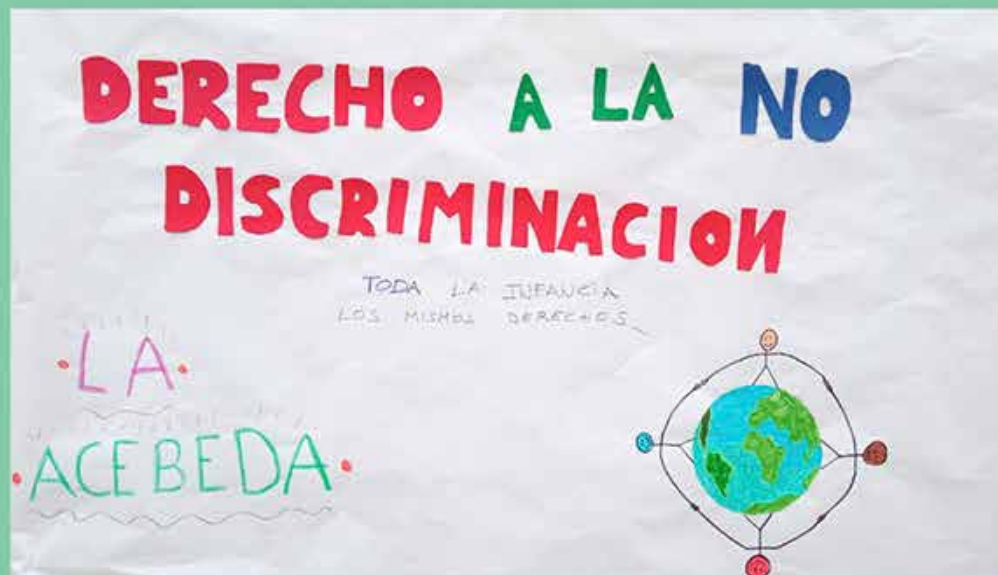 DERECHO A LA NO
DISCRIMINACION
TODA LA INFANCIA
LOS MISMOS DERECHOS
LA
ACEBEDA